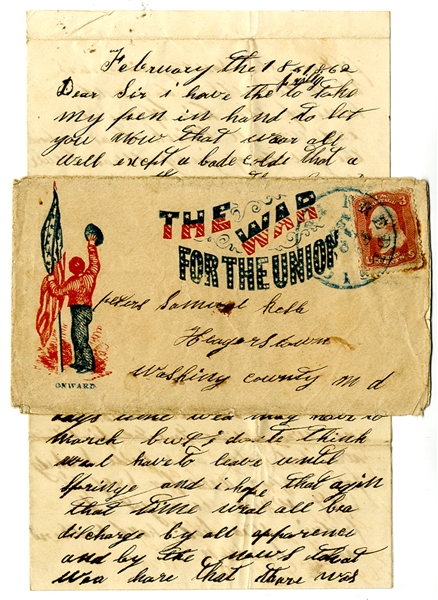 February the 18 1862
Dear Sir i have the to take
my pen in hand to let
you now that wear all
well except a bade colds that a
THE WAR
FOR THE UNION
Samuel
Hagerstown
Washing county m d
ONWARD
days time wea may have to
march but i donte think
weal have to leave until
springe and i hope that agin
that time weal all bea
discharge by all apparence
and by the news that
wea hare that there was